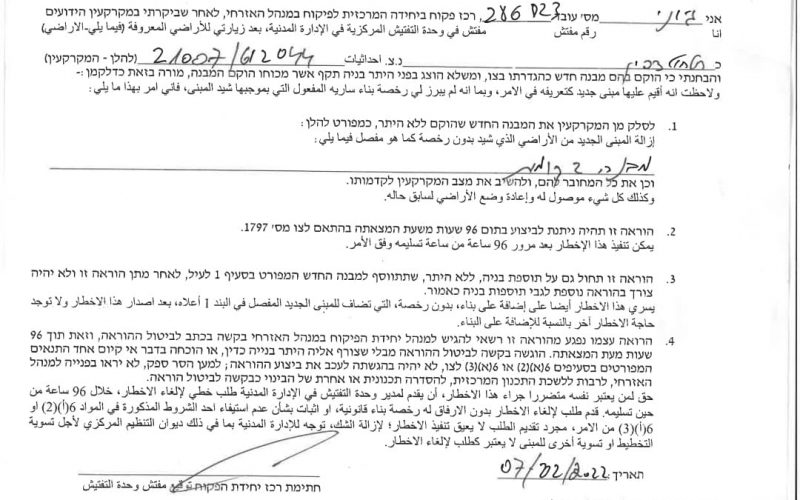 אני ג'וני מס' עובד 286 רכז פקוח ביחידה המרכזית לפיקוח במנהל האזרחי, לאחר שביקרתי במקרקעין הידועים
انا رقم مفتش مفتش في وحدة التفتيش المركزية في الإدارة المدنية، بعد زيارتي للأراضي المعروفة (فيما يلي-الأراضي)
נ.צ. احداثيات 21007/612044 (להלן - המקרקעין)
והבחנתי כי הוקם בהם מבנה חדש כהגדרתו בצו, ומשלא הוצג בפני היתר בניה תקף אשר מכוחו הוקם המבנה, מורה בזאת כדלקמן:-
ولاحظت انه أقيم عليها مبنى جديد كتعريفه في الامر، وبما انه لم يبرز لي رخصة بناء ساريه المفعول التي بموجبها شيد المبنى، فاني امر بهذا ما يلي:
1. לסלק מן המקרקעין את המבנה החדש שהוקם ללא היתר, כמפורט להלן:
إزالة المبنى الجديد من الأراضي الذي شيد بدون رخصة كما هو مفصل فيما يلي:
מבנה
וכן את כל המחובר להם, ולהשיב את מצב המקרקעין לקדמותו.
وكذلك كل شيء موصول له وإعادة وضع الأراضي لسابق حاله.
2. הוראה זו תהיה ניתנת לביצוע בתום 96 שעות משעת המצאתה בהתאם לצו מס' 1797.
يمكن تنفيذ هذا الإخطار بعد مرور 96 ساعة من ساعة تسليمه وفق الأمر.
3. הוראה זו תחול גם על תוספת בניה, ללא היתר, שתתווסף למבנה החדש המפורט בסעיף 1 לעיל, לאחר מתן הוראה זו ולא יהיה
צורך בהוראה נוספת לגבי תוספות בניה כאמור.
يسري هذا الاخطار أيضا على إضافة على بناء، بدون رخصة، التي تضاف للمبنى الجديد المفصل في البند 1 أعلاه، بعد اصدار هذا الاخطار ولا توجد
حاجة الاخطار آخر بالنسبة للإضافة على البناء.
4. הרואה עצמו נפגע מהוראה זו רשאי להגיש למנהל יחידת הפיקוח במנהל האזרחי בקשה בכתב לביטול ההוראה, וזאת תוך 96
שעות מעת המצאתה. הוגשה בקשה לביטול ההוראה מבלי שצורף אליה היתר בנייה כדין, או הוכחה בדבר אי קיום אחד התנאים
המפורטים בסעיפים 6(א)(2) או 6(א)(3) לצו, לא יהיה בהגשתה לעכב את ביצוע ההוראה; למען הסר ספק, לא יראו בפנייה למנהל
האזרחי, לרבות ללשכת התכנון המרכזית, להסדרה תכנונית או אחרת של הבינוי כבקשה לביטול הוראה.
حق لمن يعتبر نفسه متضررا جراء هذا الاخطار، أن يقدم لمدير وحدة التفتيش في الإدارة المدنية طلب خطي لإلغاء الإخطار، خلال 96 ساعة من
حين تسليمه. قدم طلب لإلغاء الاخطار بدون الارفاق له رخصة بناء قانونية، او اثبات بشأن عدم استيفاء احد الشروط المذكورة في المواد 6(أ)(2) او
6(أ)(3) من الامر، مجرد تقديم الطلب لا يعيق تنفيذ الاخطار؛ لإزالة الشك، توجه للإدارة المدنية بما في ذلك ديوان التنظيم المركزي لأجل تسوية
التخطيط او تسوية أخرى للمبنى لا يعتبر كطلب لإلغاء الاخطار.
תאריך: 07/02/2022
חתימת רכז יחידת הפקוח توقيع مفتش وحدة التفتيش